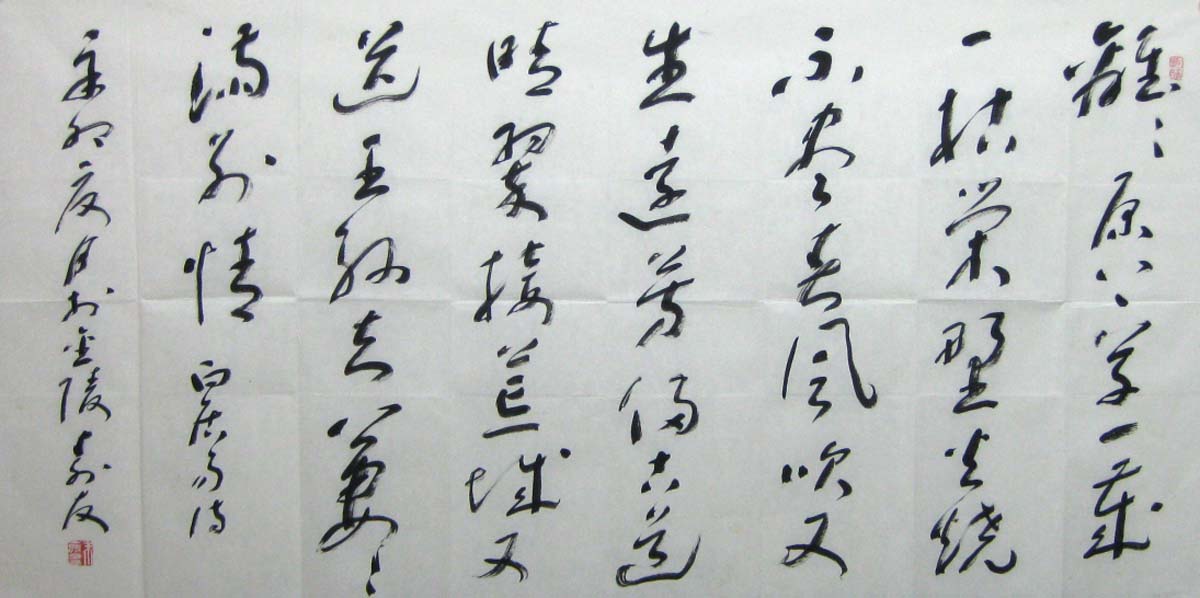 離〻原上草一歲
一枯榮野火燒
不盡春風吹又
生遠芳侵古道
晴翠接荒城又
送王孫去萋〻
滿別情 白居易詩
辛卯夏月於金陵友